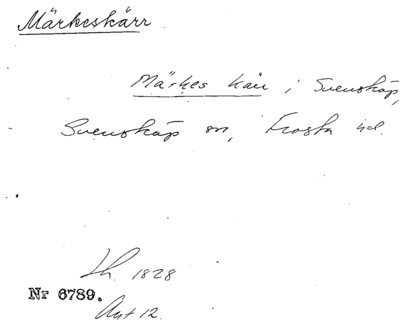 Märkeskärr
Märkes kärr i Svensköp,
Svensköp sn, Frosta hd.
Lh. 1828
Nr 6789.
Akt 12.